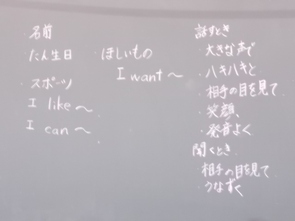 ・名前
たん生日
・スポーツ
I like～
I can～
・ほしいもの
I want～
話すとき
・大きな声で
・ハキハキと
・相手の目を見て
・笑顔
・発音よく
聞くとき
・相手の目を見て
・うなずく